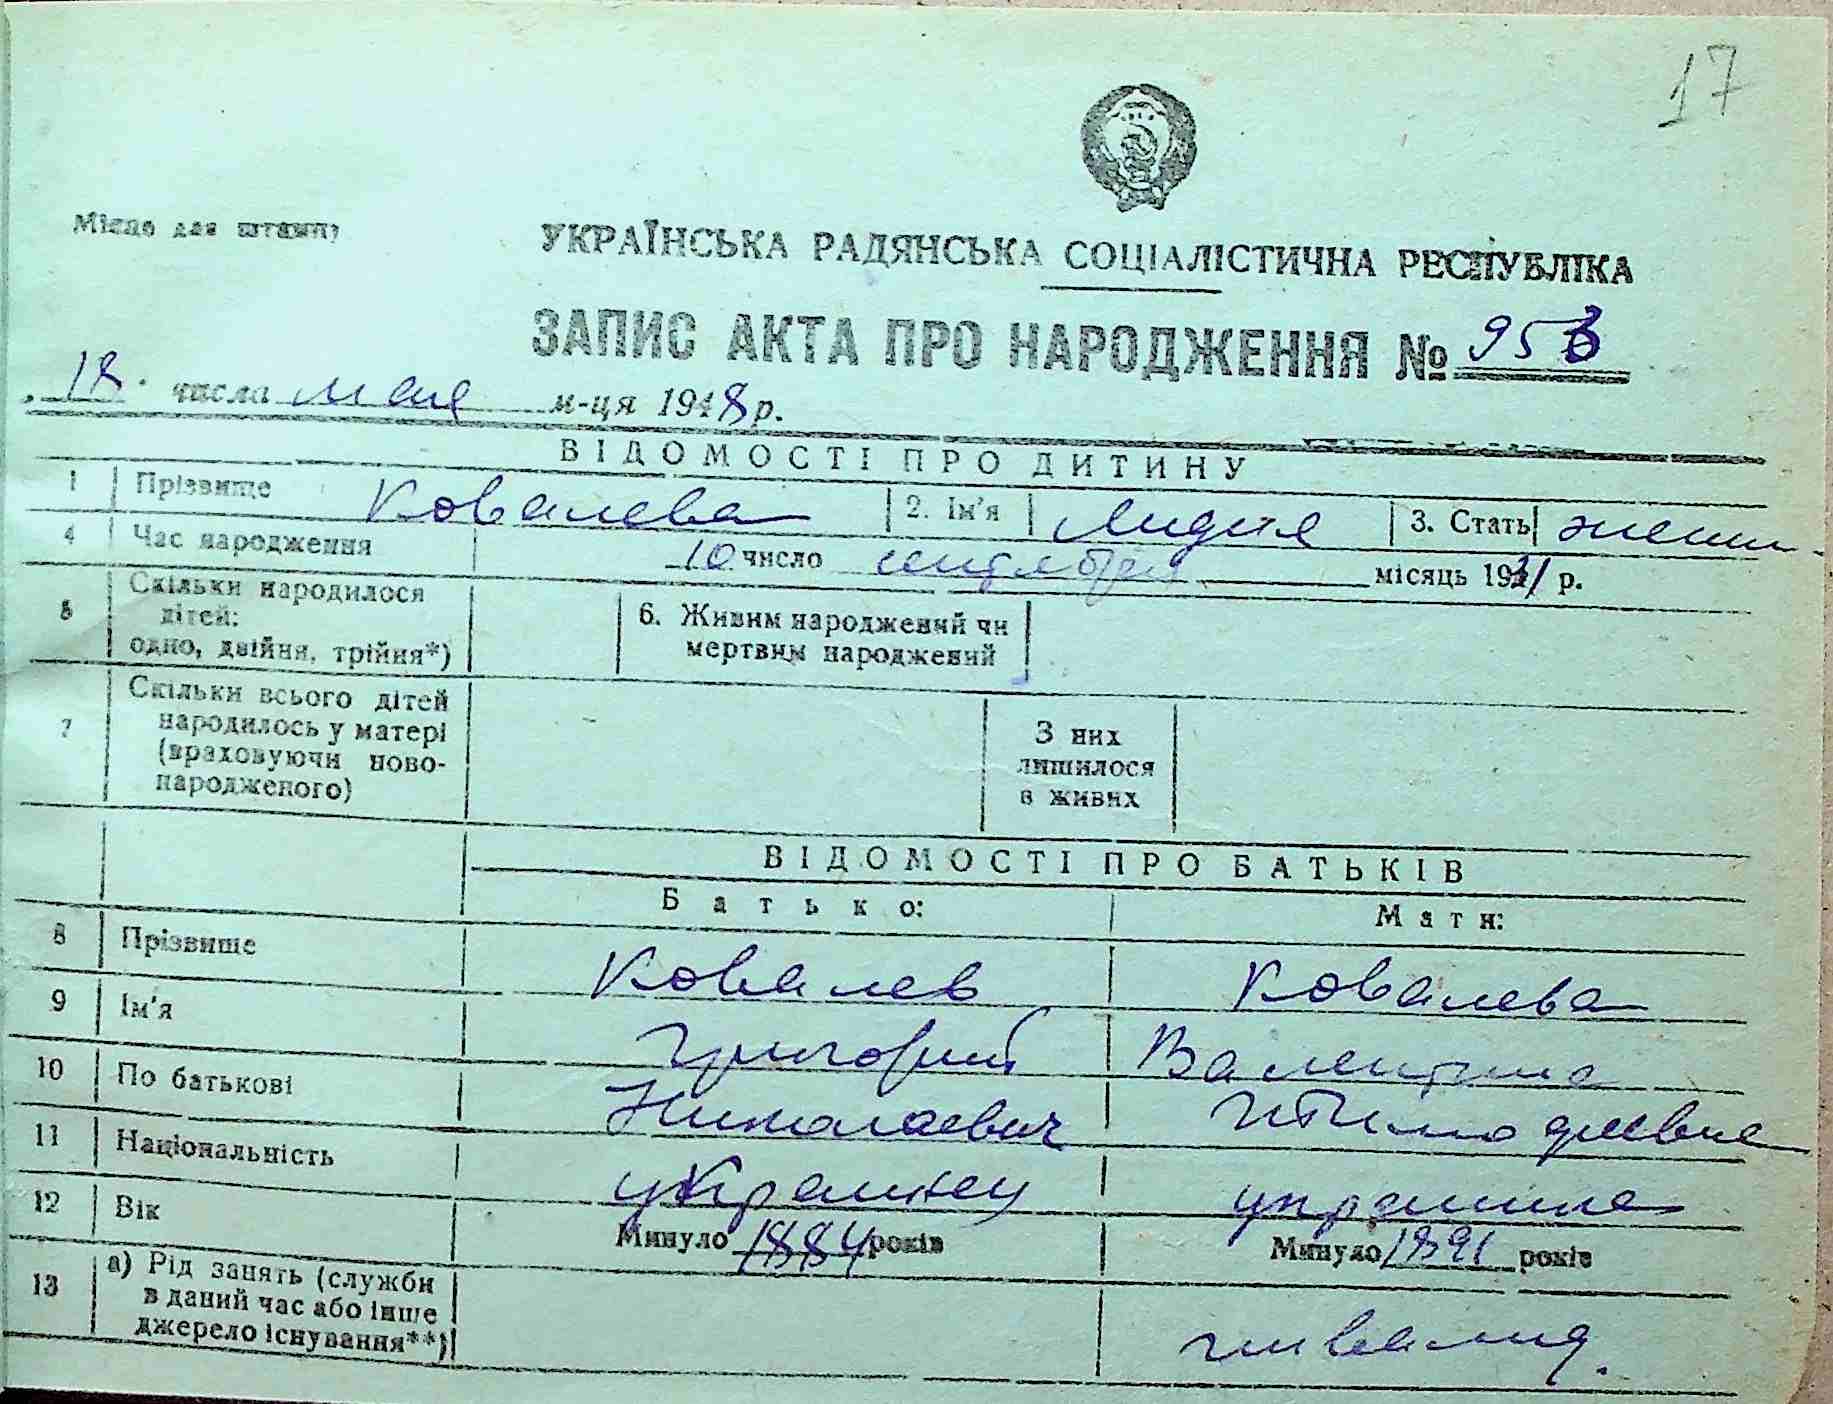 17
Місце для штампу
УКРАЇНСЬКА РАДЯНСЬКА СОЦІАЛІСТИЧНА РЕСПУБЛІКА
ЗАПИС АКТА ПРО НАРОДЖЕННЯ № 953
18 числа мая м-ця 1948 р.
ВІДОМОСТІ ПРО ДИТИНУ
1 Прізвище Ковалева 2. Ім'я Лидия 3. Стать женск
4 Час народження 10 число місяць 1931 р.
5 Скільки народилося дітей: одно, двійня, трійня*) 6. Живим народжений чи мертвим народжений
7 Скільки всього дітей народилось у матері (враховуючи новонародженого) З них лишилося в живих
ВІДОМОСТІ ПРО БАТЬКІВ
Батько: Мати:
8 Прізвище Ковалев Ковалева
9 Ім'я Григорий Валентина
10 По батькові Николаевич Тимофеевна
11 Національність украинец украинка
12 Вік Минуло 1884 років Минуло 1891 років
13 а) Рід занять (служби в даний час або інше джерело існування**) инвалид.